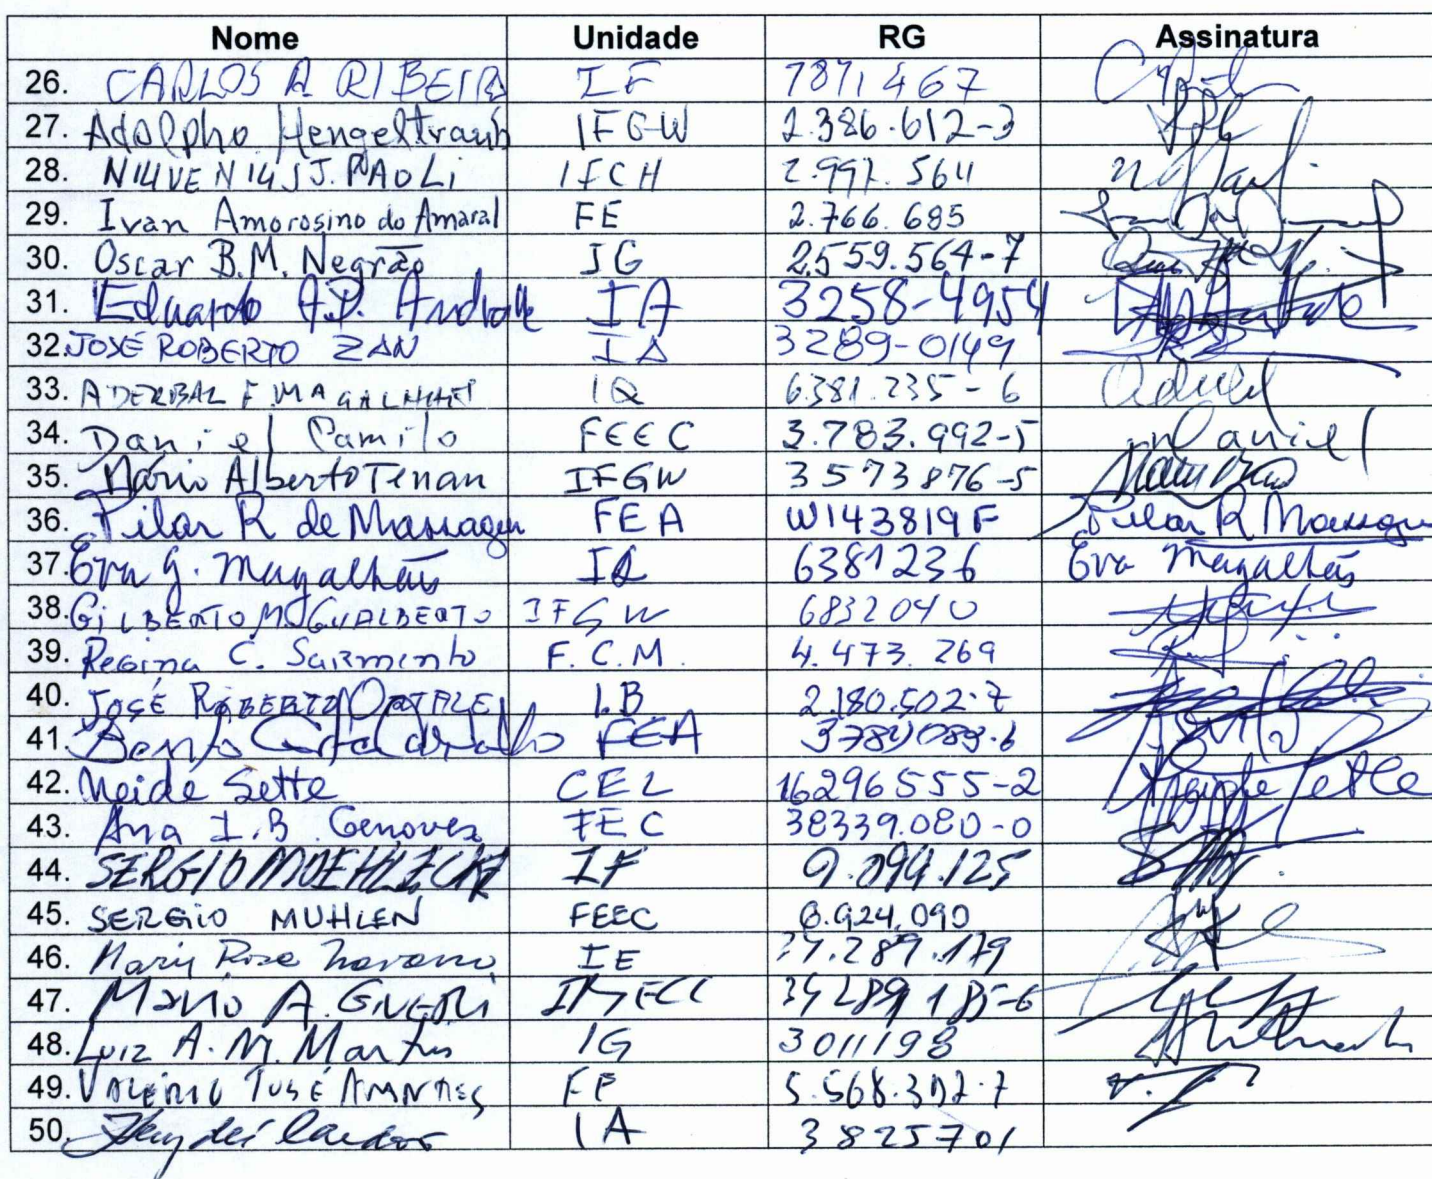 Nome Unidade RG Assinatura
26. CARLOS A RIBEIRO IF 7871467
27. Adolpho Hengeltraub IFGW 2.386.612-3
28. J. PAOLI IFCH 2.997.564
29. Ivan Amorosino do Amaral FE 2.766.685
30. Oscar B.M. Negrão IG 2.559.564-7
31. Eduardo A.P. Andrade IA 3258-4954
32. JOSÉ ROBERTO ZAN IA 3289-0149
33. ADERBAL F. MAGALHÃES IQ 6.381.235-6
34. Daniel Camilo FEEC 3.783.992-5 Daniel
35. Mário Alberto Tenan IFGW 3573876-5
36. Pilar R de Massaguer FEA W143819F Pilar R Massaguer
37. Eva G. Magalhães IQ 6381236 Eva Magalhães
38. GILBERTO M. GUALBERTO IFGW 6832040
39. Regina C. Sarmento F.C.M. 4.473.269
40. JOSÉ ROBERTO I.B 2.180.502-7
41. Bento Carvalho FEA 3784089-6
42. Neide Sette CEL 16296555-2 Neide Sette
43. Ana I.B. Genovez FEC 38339.080-0
44. SERGIO MOEHLECKE IF 9.094.125
45. SERGIO MUHLEN FEEC 8.924.090
46. IE .289.179
47. Mario A. Gneri IMECC 34289185-6
48. Luiz A. M. Martins IG 3011198
49. VALÉRIO JOSÉ ARANTES FE 5.568.302-7
50. IA 3825701